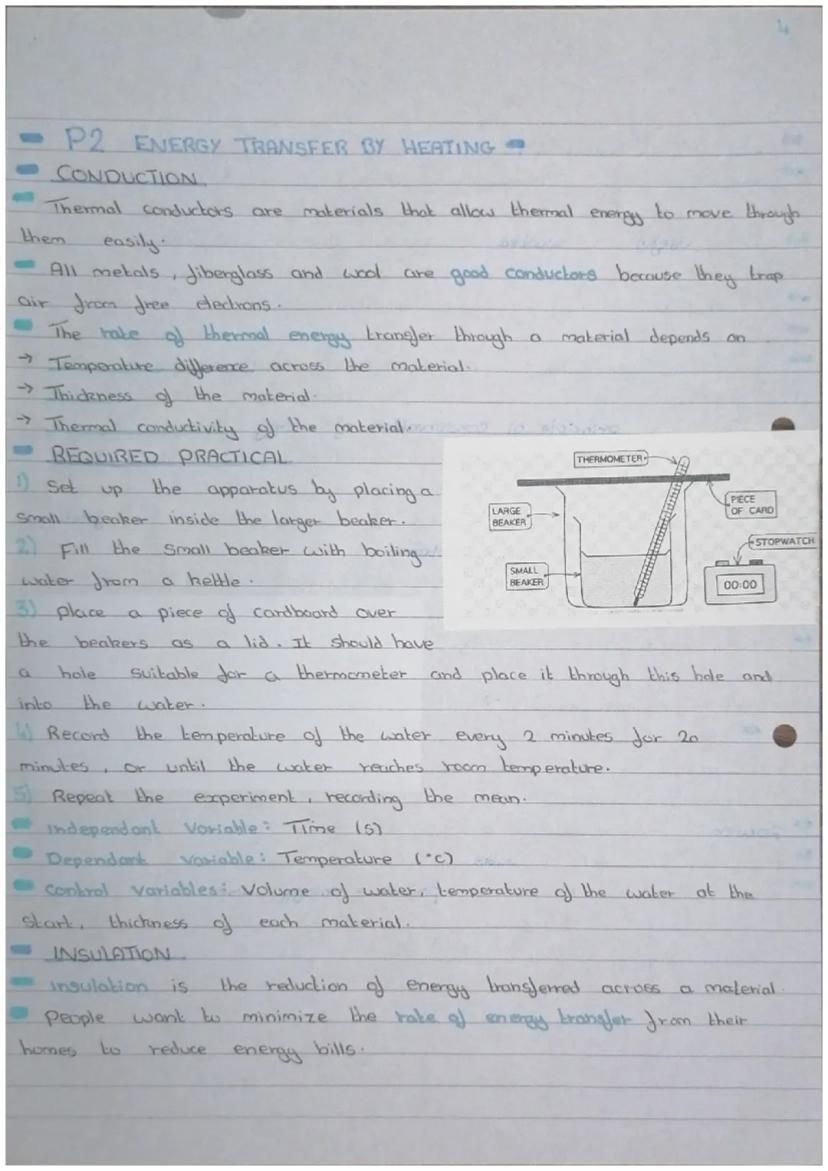 4
P2 ENERGY TRANSFER BY HEATING
CONDUCTION
Thermal conductors are materials that allow thermal energy to move through
them easily.
All metals, fiberglass and wool are good conductors because they trap
air from free electrons.
The rate of thermal energy transfer through a material depends on
→ Temperature difference across the material.
→ Thickness of the material.
→ Thermal conductivity of the material.
REQUIRED PRACTICAL
1) Set up the apparatus by placing a
small beaker inside the larger beaker.
2) Fill the small beaker with boiling
water from a kettle.
3) Place a piece of cardboard over
the beakers as a lid. It should have
a hole suitable for a thermometer and place it through this hole and
into the water.
THERMOMETER
LARGE
BEAKER
PIECE
OF CARD
STOPWATCH
SMALL
BEAKER
00:00
4) Record the temperature of the water every 2 minutes for 20
minutes, or until the water reaches room temperature.
5) Repeat the experiment, recording the mean.
Independant variable: Time (s)
Dependant variable: Temperature (°C)
Control variables: Volume of water, temperature of the water at the
start, thickness of each material.
INSULATION
Insulation is the reduction of energy transferred across a material.
People want to minimize the rate of energy transfer from their
homes to reduce energy bills.